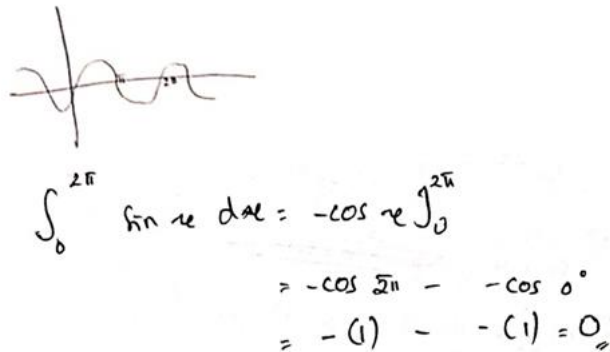 π 2π
∫₀^2π sin x dx = -cos x ]₀^2π
= -cos 2π - -cos 0°
= -(1) - -(1) = 0